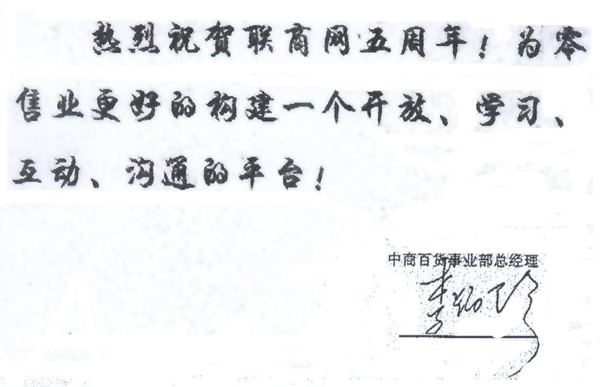 热烈祝贺联商网五周年！为零
售业更好的构建一个开放、学习、
互动、沟通的平台！
中商百货事业部总经理